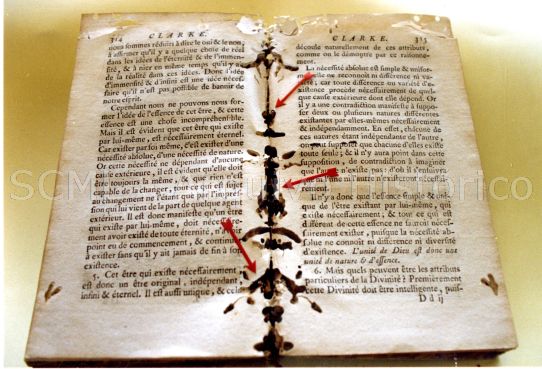 314 CLARKE.
nous sommes réduits à dire le oui & le non,
à affirmer qu'il y a quelque chose de réel
dans les idées de l'éternité & de l'immen-
sité, & à nier en même temps qu'il y ait
de la réalité dans ces idées. Donc l'idée
d'immense & d'infini est une idée nécess
faire qu'il n'est pas possible de bannir de
notre esprit.
Cependant nous ne pouvons nous for-
mer l'idée de l'essence de cet être, & cette
essence est une chose incompréhensible.
Mais il est évident que cet être qui existe
par lui-même, est nécessairement éternel.
Car exister par soi-même, c'est exister d'une
nécessité absolue, d'une nécessité de nature.
Or cette nécessité ne dépendant d'aucune
cause extérieure, il est évident qu'elle doit
être toujours la même, & que rien n'est
capable de la changer, tout ce qui est sujet
au changement ne l'étant que par l'impres-
sion qui lui vient de la part de quelque agent
extérieur. Il est donc manifeste qu'un être
qui existe par lui-même, doit nécessaire-
ment avoir existé de toute éternité, n'avoir
point eu de commencement, & continuer
à exister sans qu'il y ait jamais de fin à son
existence.
5. Cet être qui existe nécessairement,
est donc un être original, indépendant,
infini & éternel. Il est aussi unique, & cela
CLARKE. 315
découle naturellement de ces attributs,
comme on le démontre par ce raisonne-
ment.
La nécessité absolue est simple & unifor-
me, elle ne reconnoît ni différence ni va-
riété; car toute différence ou variété d'e-
xistence procede nécessairement de quel-
que cause extérieure dont elle dépend. Or
il y a une contradiction manifeste à suppo-
ser deux ou plusieurs natures différentes
existantes par elles-mêmes nécessairement
& indépendamment. En effet, chacune de
ces natures étant indépendante de l'autre,
on peut supposer que chacune d'elles existe
toute seule; & il n'y aura point dans cette
supposition, de contradiction à imaginer
que l'autre n'existe pas: d'où il s'ensuivra
que ni l'une ni l'autre n'existera nécessai-
rement.
Il n'y a donc que l'essence simple & uni-
que de l'être existant par lui-même, qui
existe nécessairement, & tout ce qui est
différent de cette essence ne sauroit néces-
sairement exister, puisque la nécessité ab-
solue ne connoît ni différence ni diversité
d'existence. L'unité de Dieu est donc une
unité de nature & d'essence.
6. Mais quels peuvent être les attributs
particuliers de la Divinité? Premiérement
cette Divinité doit être intelligente, puis-
D d ij